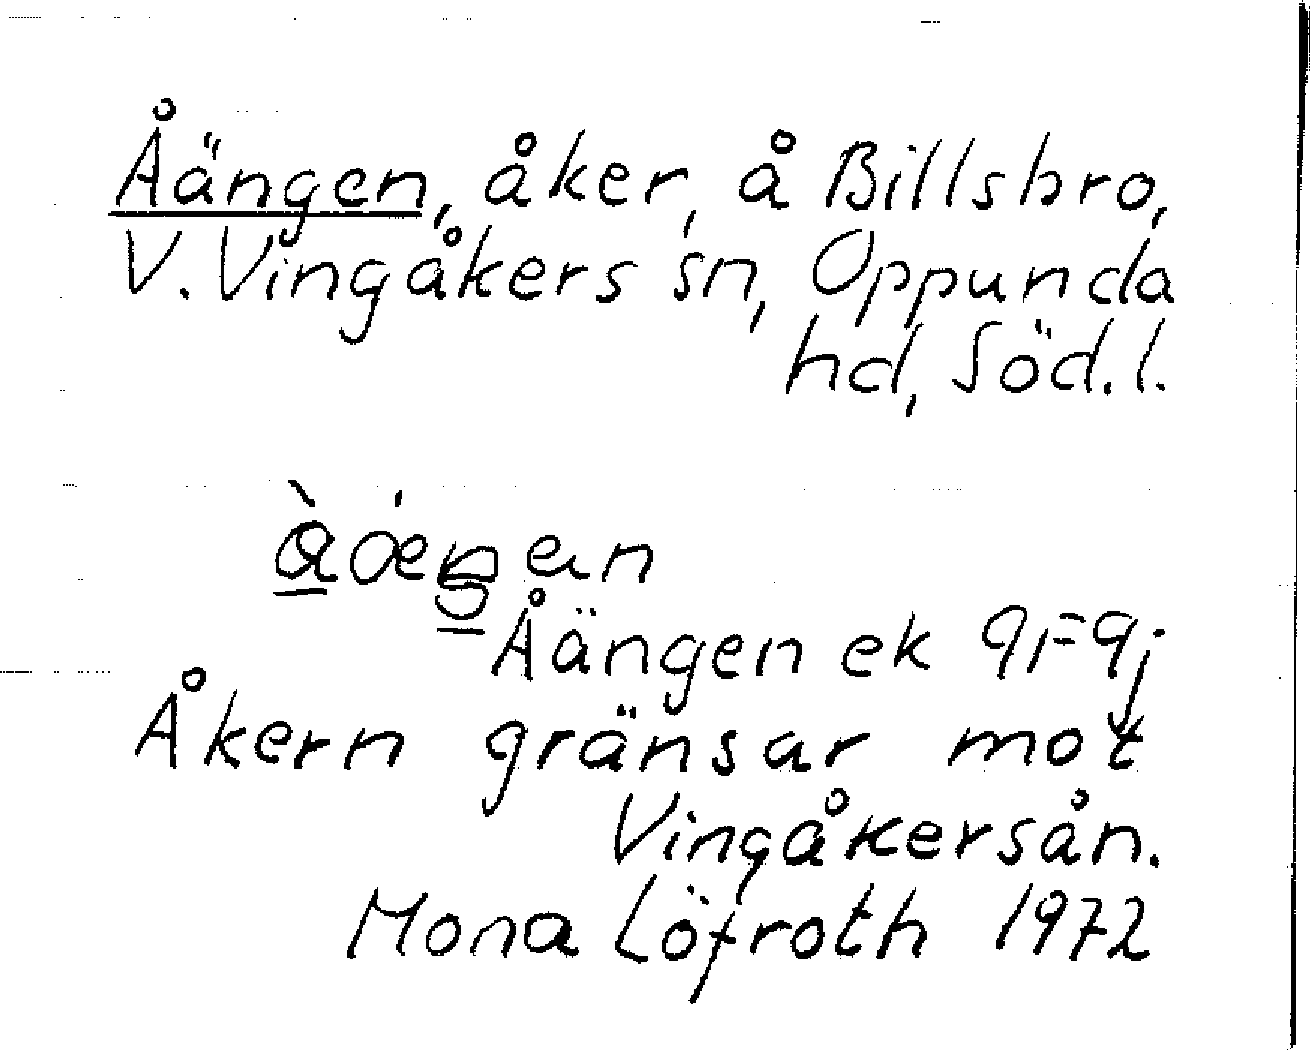 Åängen, åker, å Billsbro,
V. Vingåkers sn, Oppunda
hd, Söd. l.
Åängen ek 9F9j
Åkern gränsar mot
Vingåkersån.
Mona Löfroth 1972